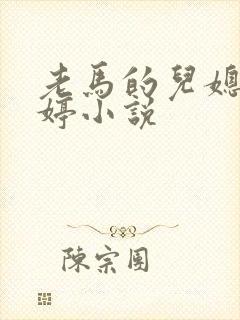 老馬的兒媳
婷小說
陳宗圍